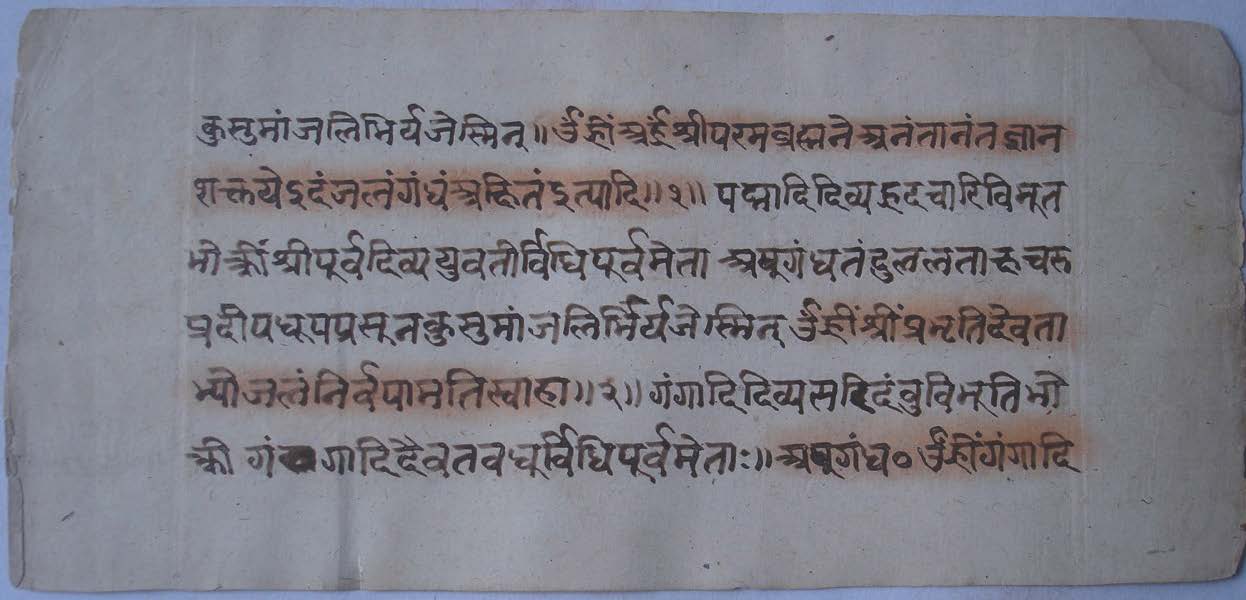 कुसुमांजलिभिर्यजेस्मिन्॥ ॐह्रीं अर्हं श्रीपरमब्रह्मने अनंतानंतज्ञान
शक्तयेइदंजलंगंधंअक्षितंइत्यादि॥१॥ पद्मादिदिव्यह्रदचारिविभूत
श्रीपूर्वदिव्ययुवतीर्विधिपूर्वमेता अप्गंधतंदुललताह्रचरु
प्रदीपधूपप्रसूनकुसुमांजलिर्भिर्यजेस्मिन् ॐह्रीं श्रीं प्रभृतिदेवता
भ्योजलंनिर्वपामतिस्वाहा॥२॥ गंगादिदिव्यसरिदंबुविभूतिभो
गंगादिदैवतवधूर्विधिपूर्वमेताः॥ अप्गंध० ॐह्रींगंगादि